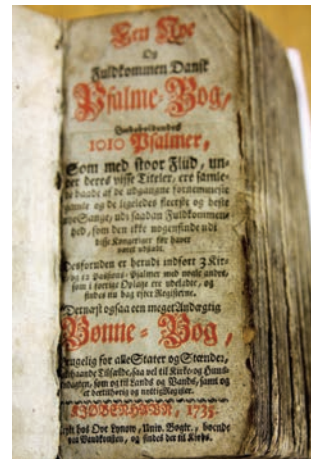 Een Nye
Og
Fuldkommen Dansk
Psalme-Bog,
Indeholdendes
1010 Psalmer,
Som med stoor Fliid, un-
der deres visse Titeler, ere samle-
de baade af de udgangne fornemmeste
gamle og de ligeledes fleeste og beste
nye Sange, udi saadan Fuldkommen-
hed, som den ikke nogensinde udi
disse Kongeriger før haver
været udgaaet.
Desforuden er herudi indført 3 Kir-
som i forrige Oplage ere udeladte, og
findes nu bag efter Registerne.
Dernæst ogsaa een meget Andægtig
Bønne-Bog,
brugelig for alle Stater og Stænder,
saa vel til Kirke og Huus-
som og til Lands og Vands, samt og
et betilhørig og nøttig Register.
KJØBENHAVN, 1735.
hos Ove Lynow, Univ. Bogtr., boende
og findes der til Kiøbs.